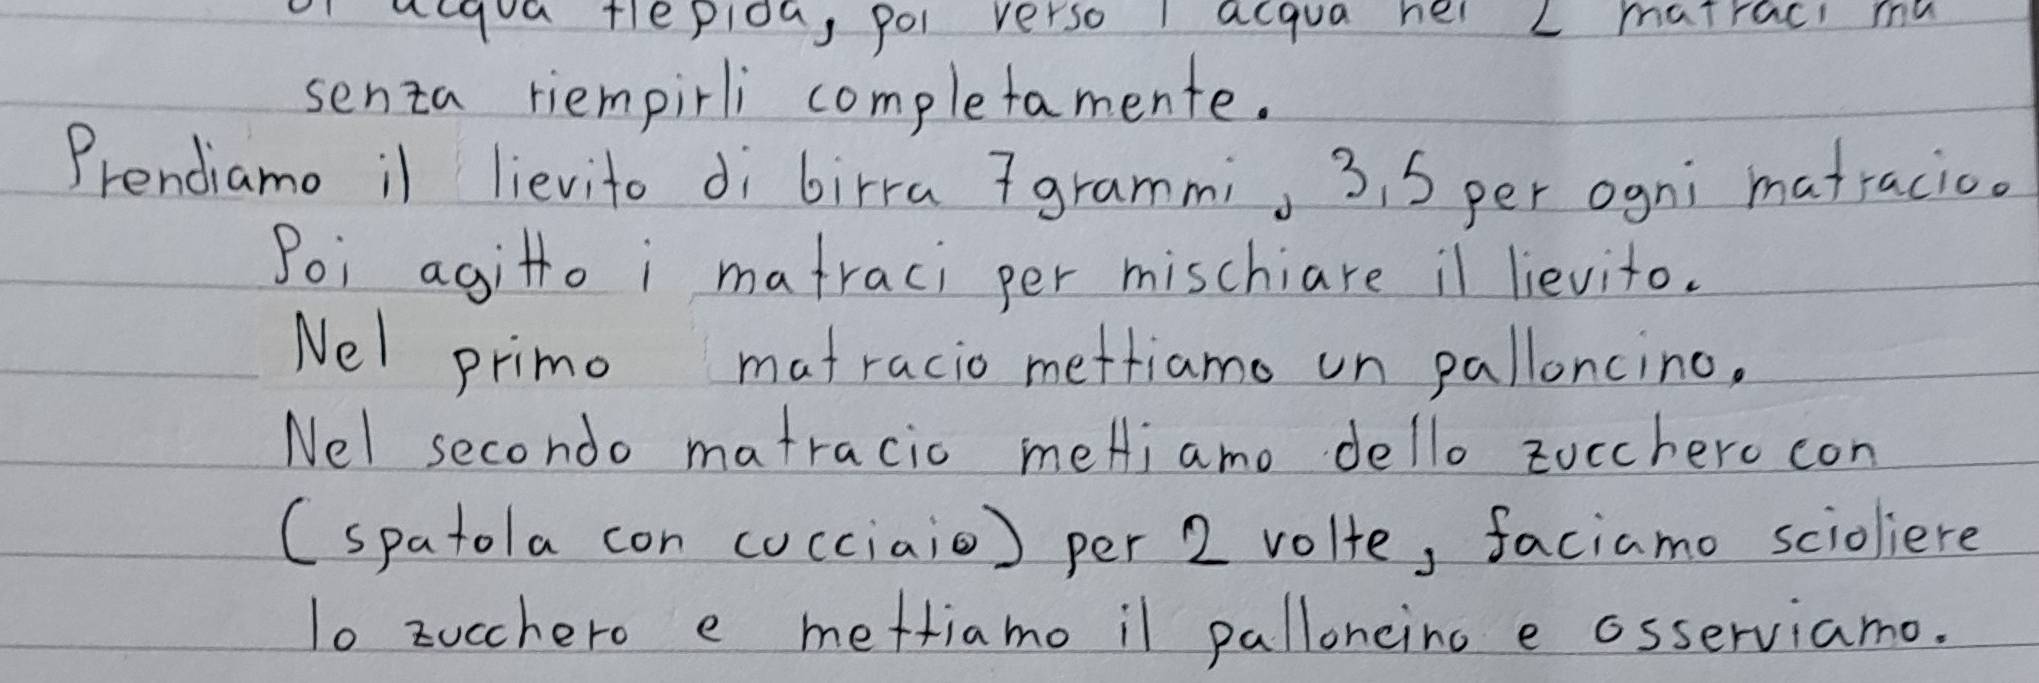 di acqua tiepida, poi verso l acqua nei 2 matraci ma
senza riempirli completamente.
Prendiamo il lievito di birra 7 grammi, 3,5 per ogni matracio.
Poi agitto i matraci per mischiare il lievito.
Nel primo matracio mettiamo un palloncino.
Nel secondo matracio mettiamo dello zucchero con
(spatola con cucciaio) per 2 volte, faciamo scioliere
lo zucchero e mettiamo il palloncino e osserviamo.